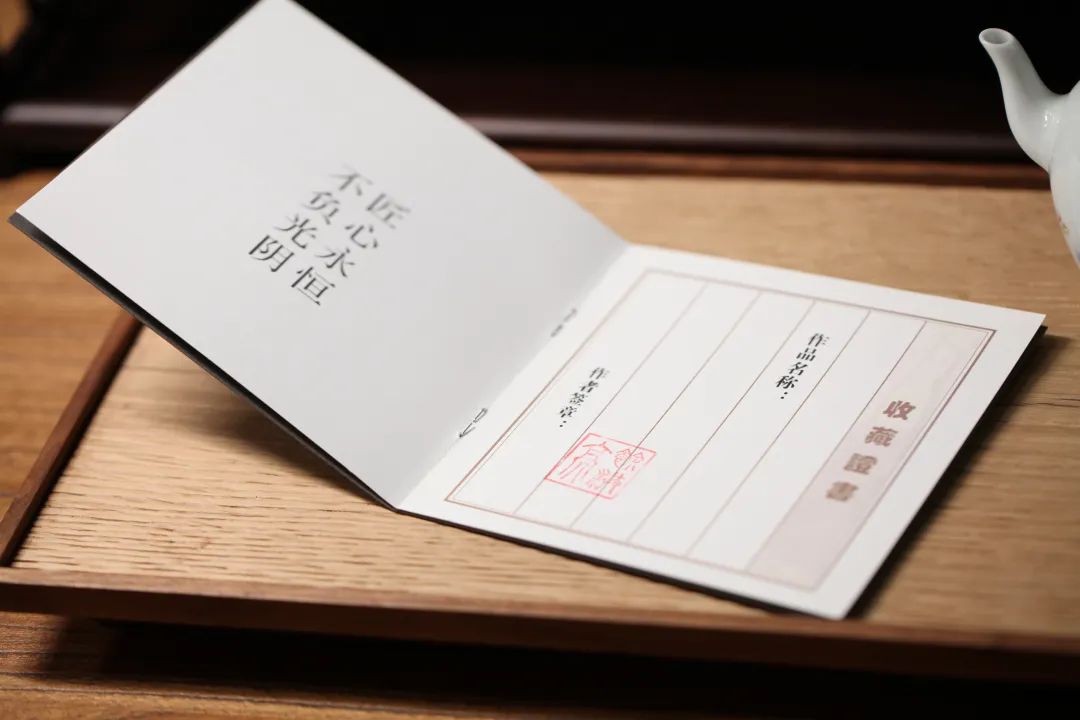 匠心永恒
不负光阴
收藏證書
作品名称：
作者签章：